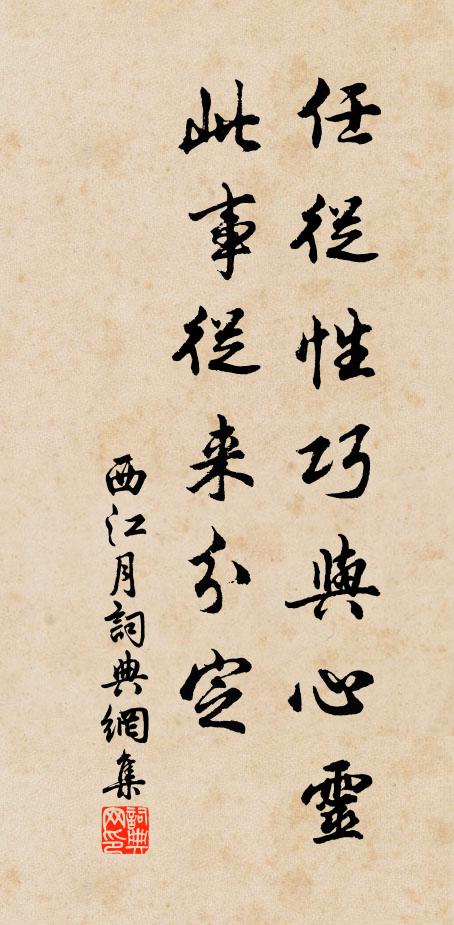 任從性巧與心靈
此事從来分定
西江月詞典網集
詞典网印